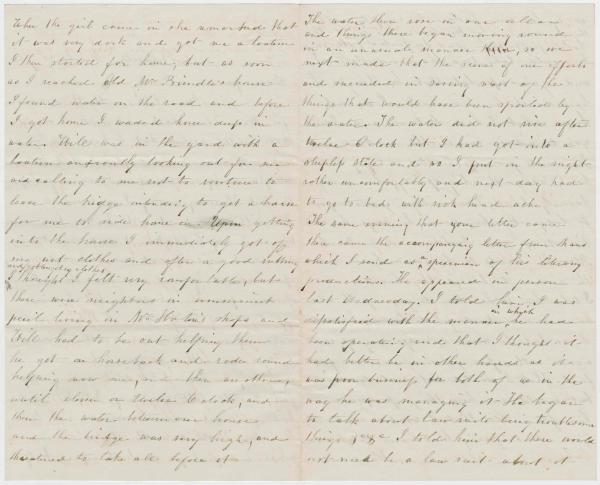 When the girl came in she remarked that
it was very dark and got me a lantern
I then started for home, but as soon
as I reached old Mr Brindle's house
I found water on the road and before
I got home I waded knee deep in
water. Will was in the yard with a
lantern anxiously looking out for me
and calling to me not to venture to
leave the bridge intending to get a horse
for me to ride home in. Upon getting
into the house I immediately got off
my wet clothes and after a good rubbing
and putting on dry clothes
I thought I felt very comfortable, but
there were neighbors in imminent
peril living in Mr shops and
Will had to be out helping them
he got on horseback and rode round
helping now one, and then another,
until eleven or twelve O clock, and
then the water between our house
and the bridge was very high, and
threatened to take all before it
The water then rose in our
and things there began moving round
in an manner so we
next made that the scene of our efforts
and succeeded in saving most of the
things that would have been spoiled by
the water. The water did not rise after
twelve O clock but I had got into a
sleepless state and so I put in the night
rather uncomfortably and next day had
to go to bed with sick head ache
The same evening that your letter came
there came the accompanying letter from
which I send as a specimen of his literary
productions. He appeared in person
last Wednesday. I told him I was
dissatisfied with the manner in which he had
been operating and that I thought it
had better be in other hands as it
was poor business for both of us in the
way he was managing it He began
to talk about law suits being troublesome
things &c &c I told him that there would
not need be a law suit about it